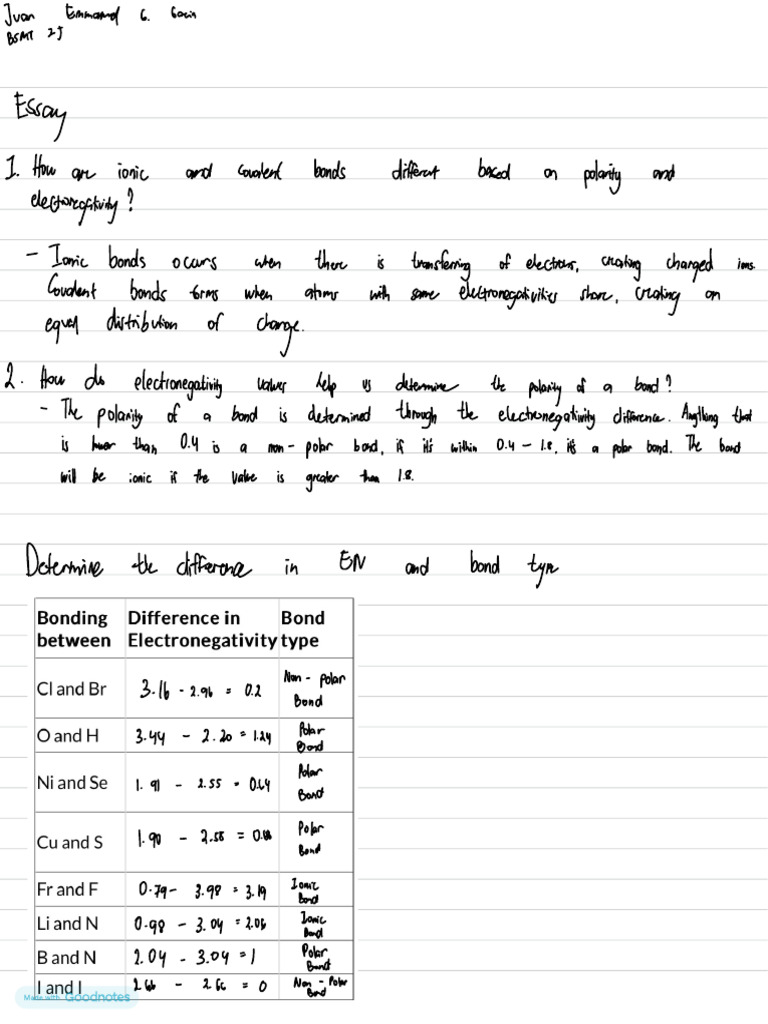 Juan Emmanuel G. Gacin
BSMT 2J
Essay
1. How are ionic and covalent bonds different based on polarity and
electronegativity?
- Ionic bonds occurs when there is transfering of electrons, creating charged ions.
Covalent bonds forms when atoms with same electronegativities share, creating an
equal distribution of charge.
2. How do electronegativity values help us determine the polarity of a bond?
- The polarity of a bond is determined through the electronegativity difference. Anything that
is lower than 0.4 is a non-polar bond, if it's within 0.4 - 1.8, it's a polar bond. The bond
will be ionic if the value is greater than 1.8.
Determine the difference in EN and bond type
Bonding between Difference in Electronegativity Bond type
Cl and Br 3.16 - 2.96 = 0.2 Non-polar Bond
O and H 3.44 - 2.20 = 1.24 Polar Bond
Ni and Se 1.91 - 2.55 = 0.64 Polar Bond
Cu and S 1.90 - 2.58 = Polar Bond
Fr and F 0.79 - 3.98 = 3.19 Ionic Bond
Li and N 0.98 - 3.04 = 2.06 Ionic Bond
B and N 2.04 - 3.04 = 1 Polar Bond
I and I 2.66 - 2.66 = 0 Non-Polar Bond
Made with Goodnotes